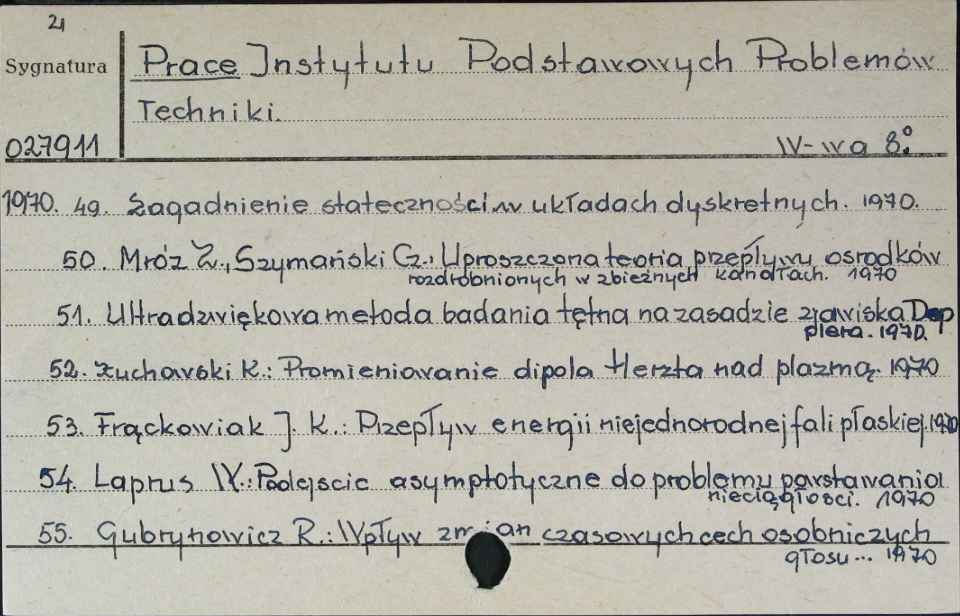 21
Sygnatura Prace Instytutu Podstawowych Problemów
Techniki.
027911 W-wa 8°.
1970. 49. Zagadnienie stateczności w układach dyskretnych. 1970.
50. Mróz Z., Szymański Cz.: Uproszczona teoria przepływu osrodków
rozdrobnionych w zbieżnych kanałach. 1970
51. Ultradzwiękowa metoda badania tętna na zasadzie zjawiska Dop
plera. 1970.
52. Żuchowski K.: Promieniowanie dipola Hertza nad plazmą. 1970
53. Frąckowiak J. K.: Przepływ energii niejednorodnej fali płaskiej. 1970
54. Laprus W.: Podejscie asymptotyczne do problemu powstawania
nieciągłosci. 1970
55. Gubrynowicz R.: Wpływ zmian czasowych cech osobniczych
głosu... 1970